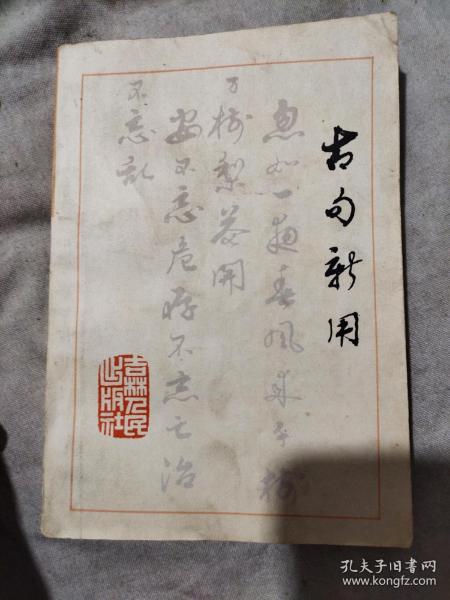 古句新用
忽如一夜春风来千树
万树梨花开
安不忘危存不忘亡治
不忘乱
吉林人民
出版社
孔夫子旧书网
www.kongfz.com